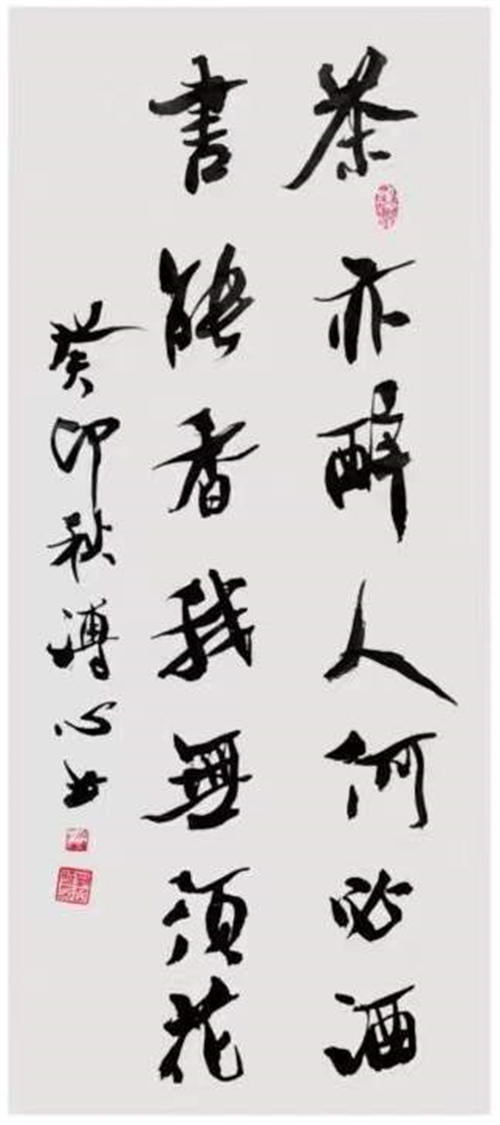 茶亦醉人何必酒
書能香我無須花
癸卯秋溥心